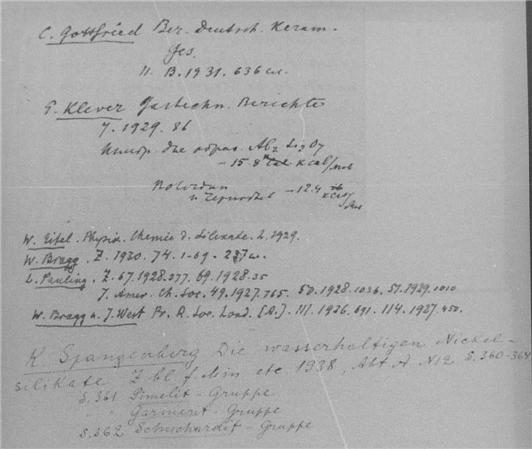 C. Gottfried Ber. Deutsch. Keram.
Ges.
N. B. 1931. 636
E. Klever Glastechn. Berichte
7. 1929. 86
Al₂ Si₂ O₇
- 15.8 kcal/mol
- 12.4
W. Eitel. Physik. Chemie d. Silikate. L. 1929.
W. Bragg. Z. 1930. 74. 1-69 - 237
L. Pauling. Z. 67. 1928. 377. 69. 1928. 35
J. Amer. Ch. Soc. 49. 1927. 765. 50. 1928. 1036. 51. 1929. 1010
W. Bragg u. J. West Pr. R. Soc. Lond. (A.). 111. 1926. 691. 114. 1927. 450.
K. Spangenberg Die wasserhaltigen Nickel-
silikate Z bl f. Min etc 1938, Abt. A N12 S. 360-364
S. 361 Pimelit - Gruppe
" Garnierit - Gruppe
S. 362 Schuchardit - Gruppe